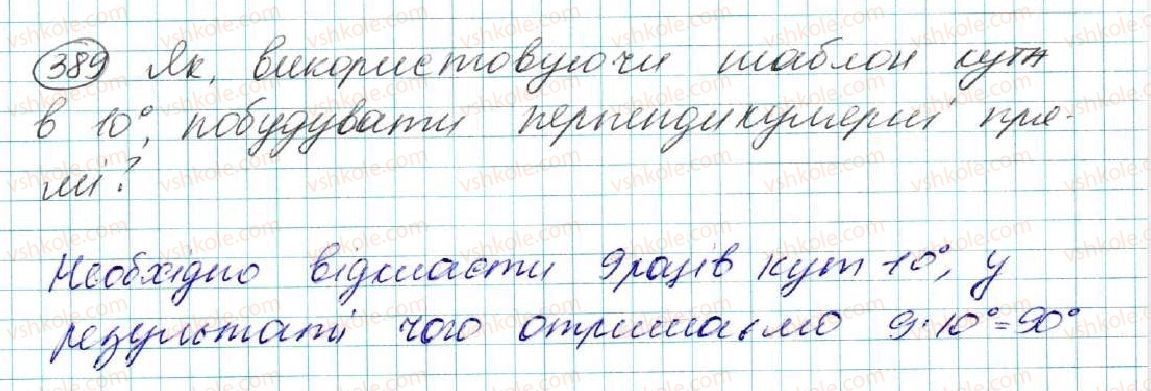 389 Як, використовуючи шаблон кута
в 10°, побудувати перпендикулярні пря-
мі?
Необхідно відкласти 9 разів кут 10°, у
результаті чого отримаємо 9·10°=90°